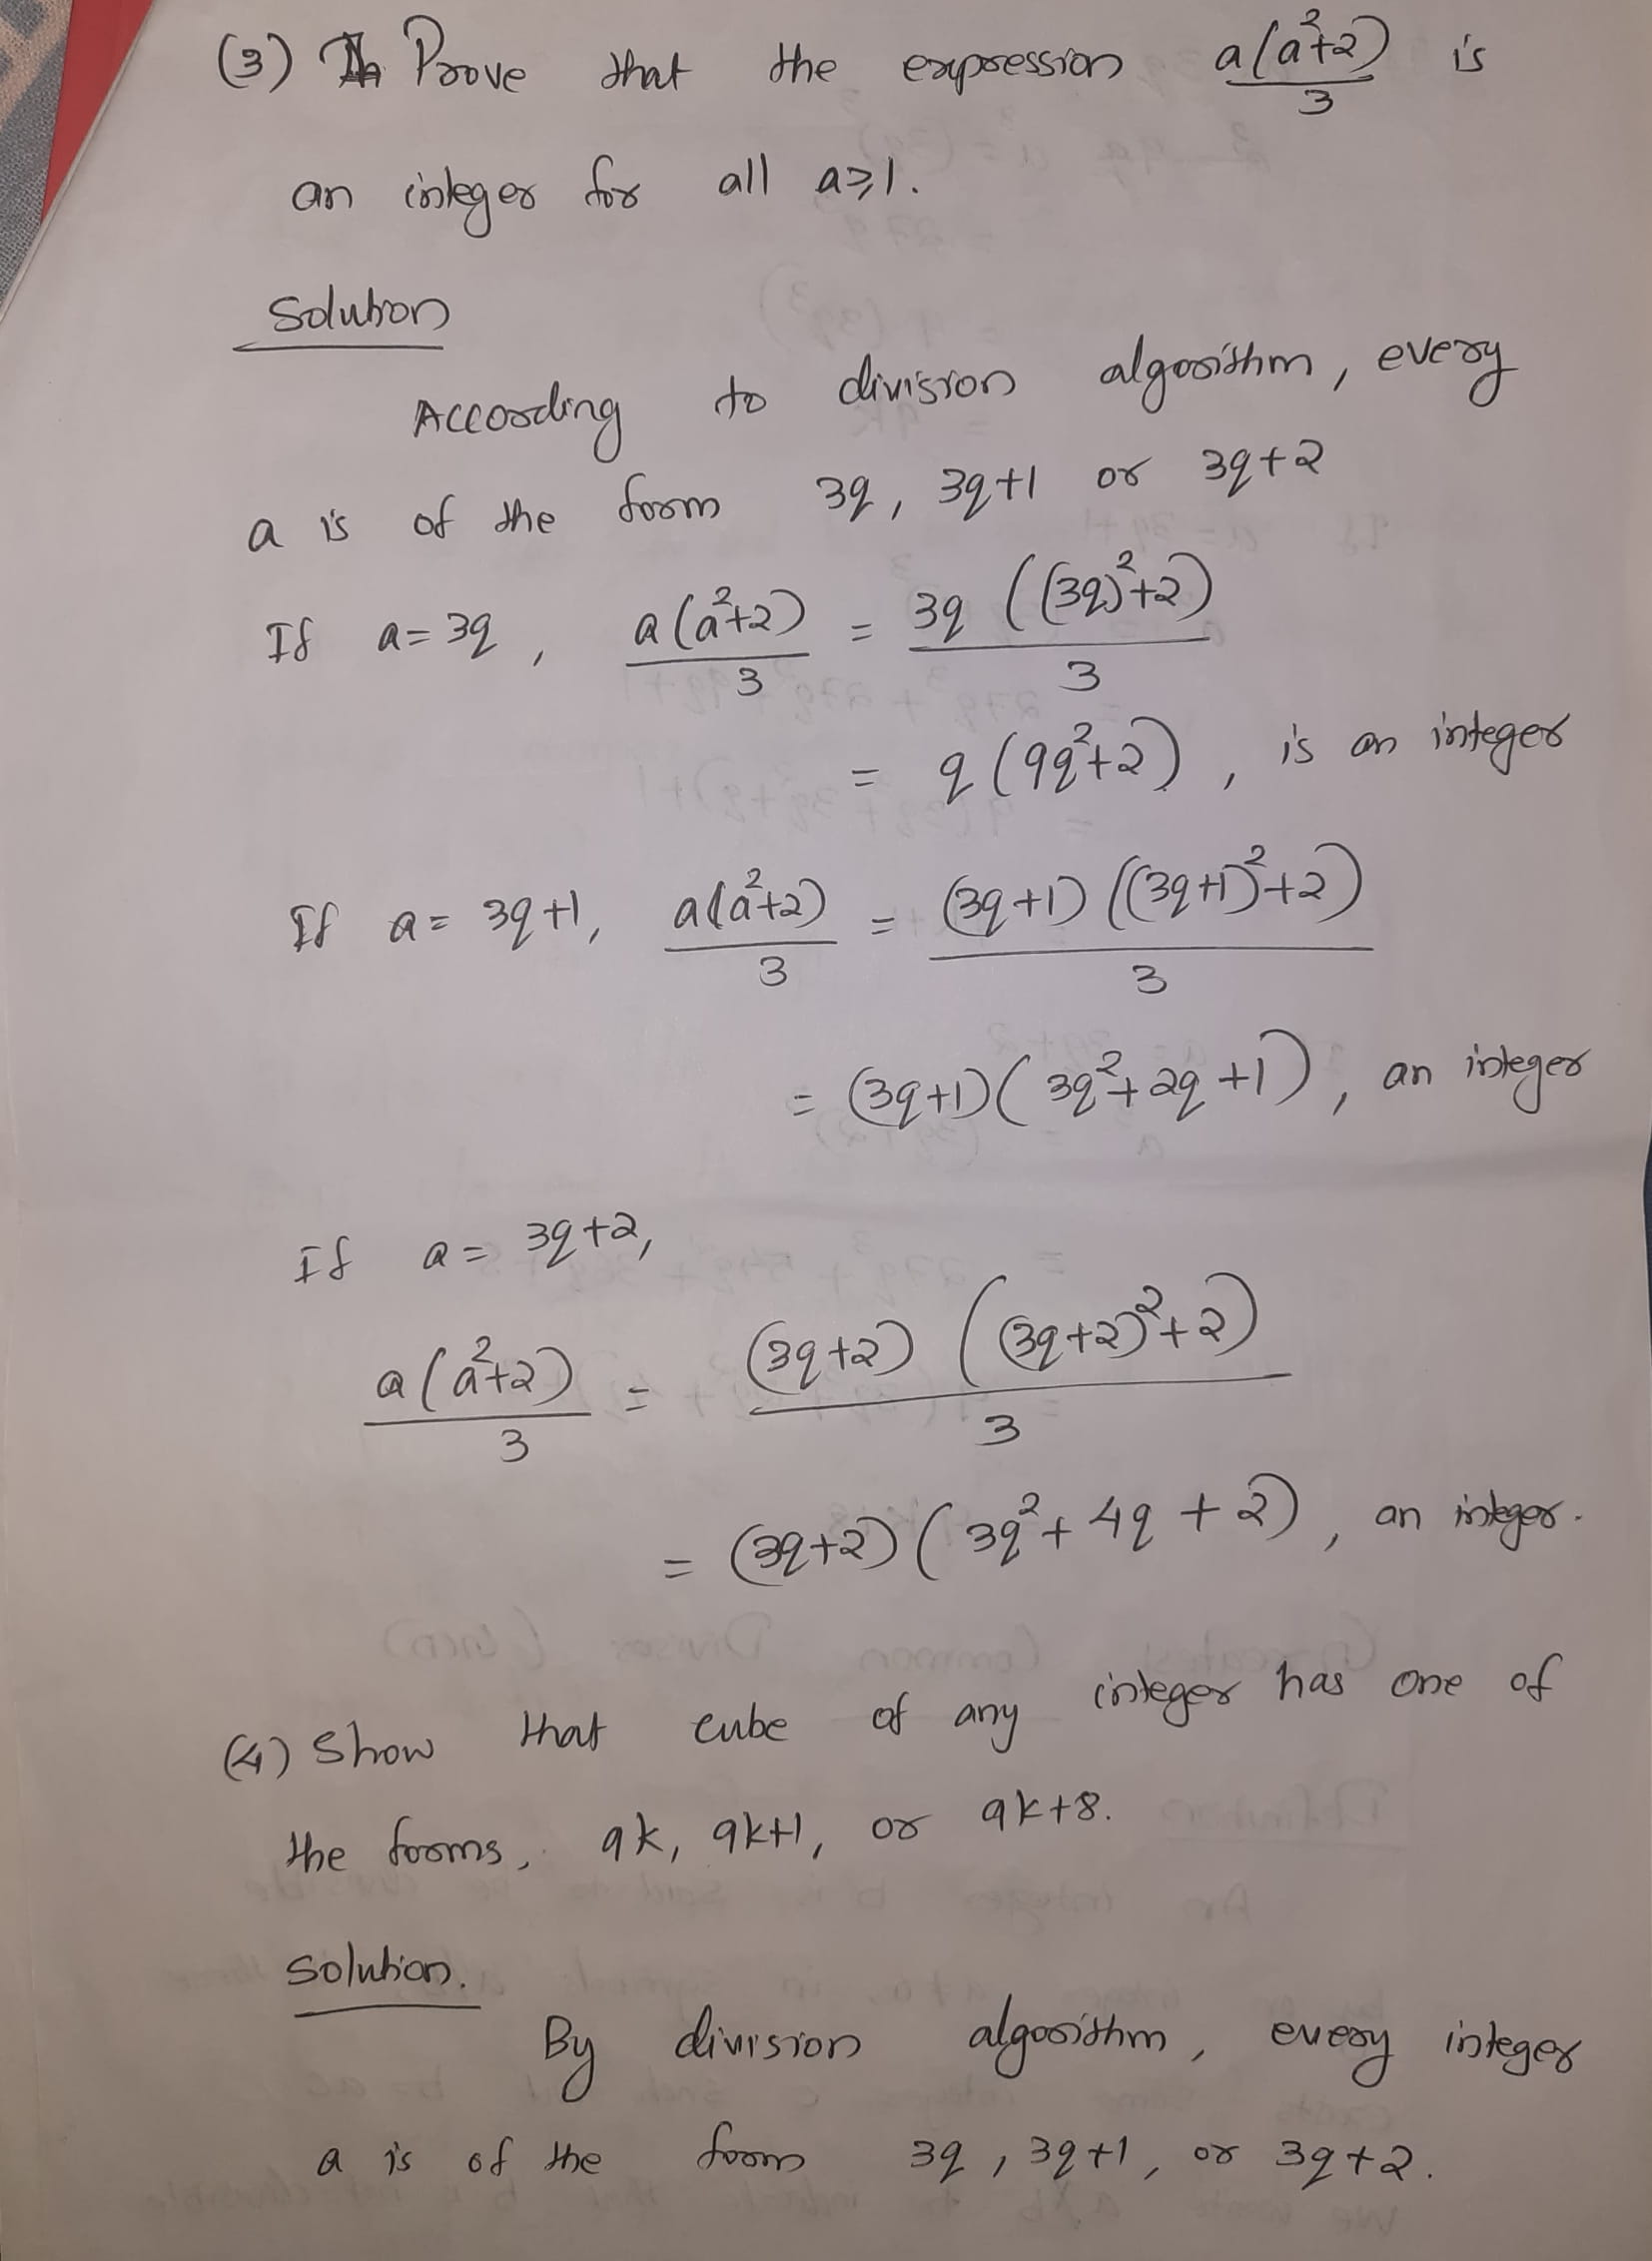 (3) Prove that the expression a(a²+2)/3 is
an integer for all a≥1.
Solution
According to division algorithm, every
a is of the form 3q, 3q+1 or 3q+2
If a=3q, a(a²+2)/3 = 3q((3q)²+2)/3
= q(9q²+2), is an integer
If a = 3q+1, a(a²+2)/3 = (3q+1)((3q+1)²+2)/3
= (3q+1)(3q²+2q+1), an integer
If a = 3q+2,
a(a²+2)/3 = (3q+2)((3q+2)²+2)/3
= (3q+2)(3q²+4q+2), an integer.
(4) Show that cube of any integer has one of
the forms, 9k, 9k+1, or 9k+8.
Solution.
By division algorithm, every integer
a is of the form 3q, 3q+1, or 3q+2.